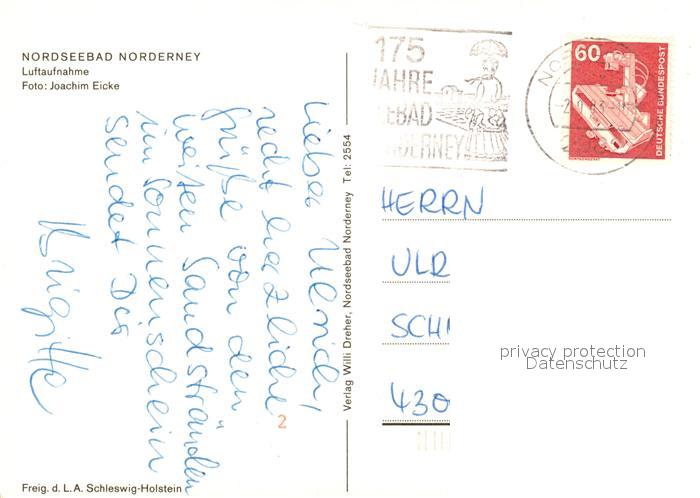 NORDSEEBAD NORDERNEY
Luftaufnahme
Foto: Joachim Eicke
Lieber Ulrich!
recht herzliche
Grüße von den
weißen Sandstränden
im Sonnenschein
sendet Dir
Brigitte
2
Freig. d. L. A. Schleswig-Holstein
Verlag Willi Dreher, Nordseebad Norderney Tel: 2554
175
JAHRE
EEBAD
NDERNEY
NO
60
DEUTSCHE BUNDESPOST
HERRN
ULR
SCHI
430
privacy protection
Datenschutz